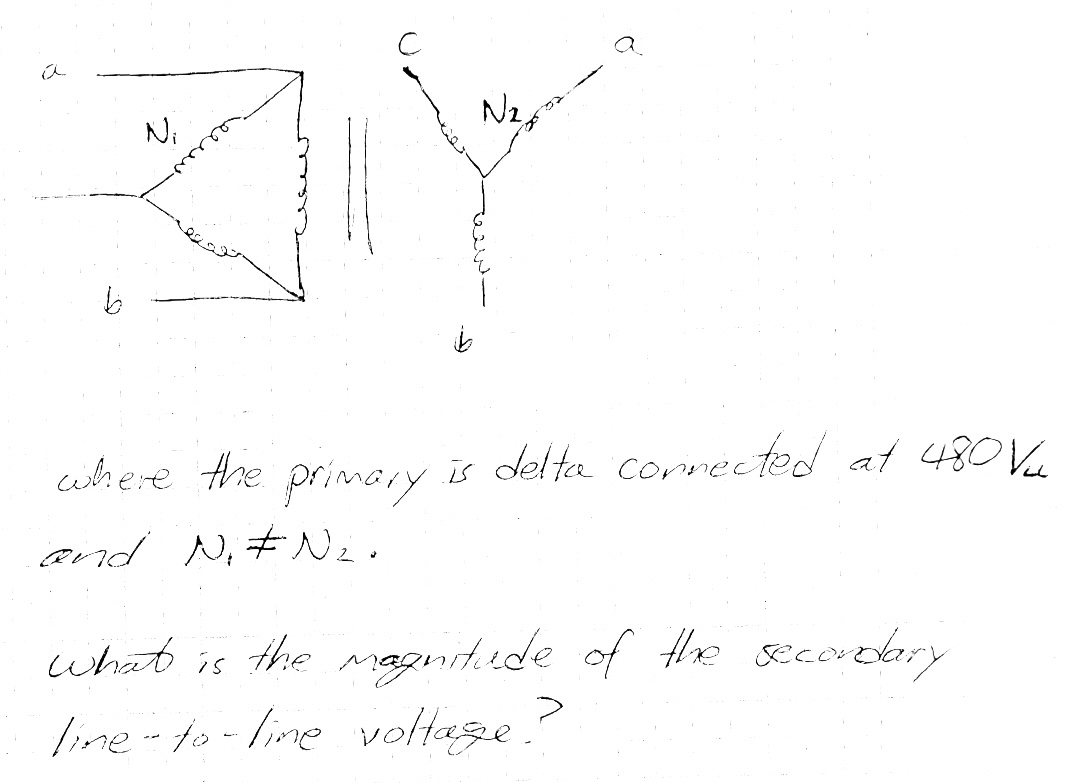 a
N1
b
C
N2
a
b
where the primary is delta connected at 480 VLL
and N1 ≠ N2.
what is the magnitude of the secondary
line-to-line voltage?